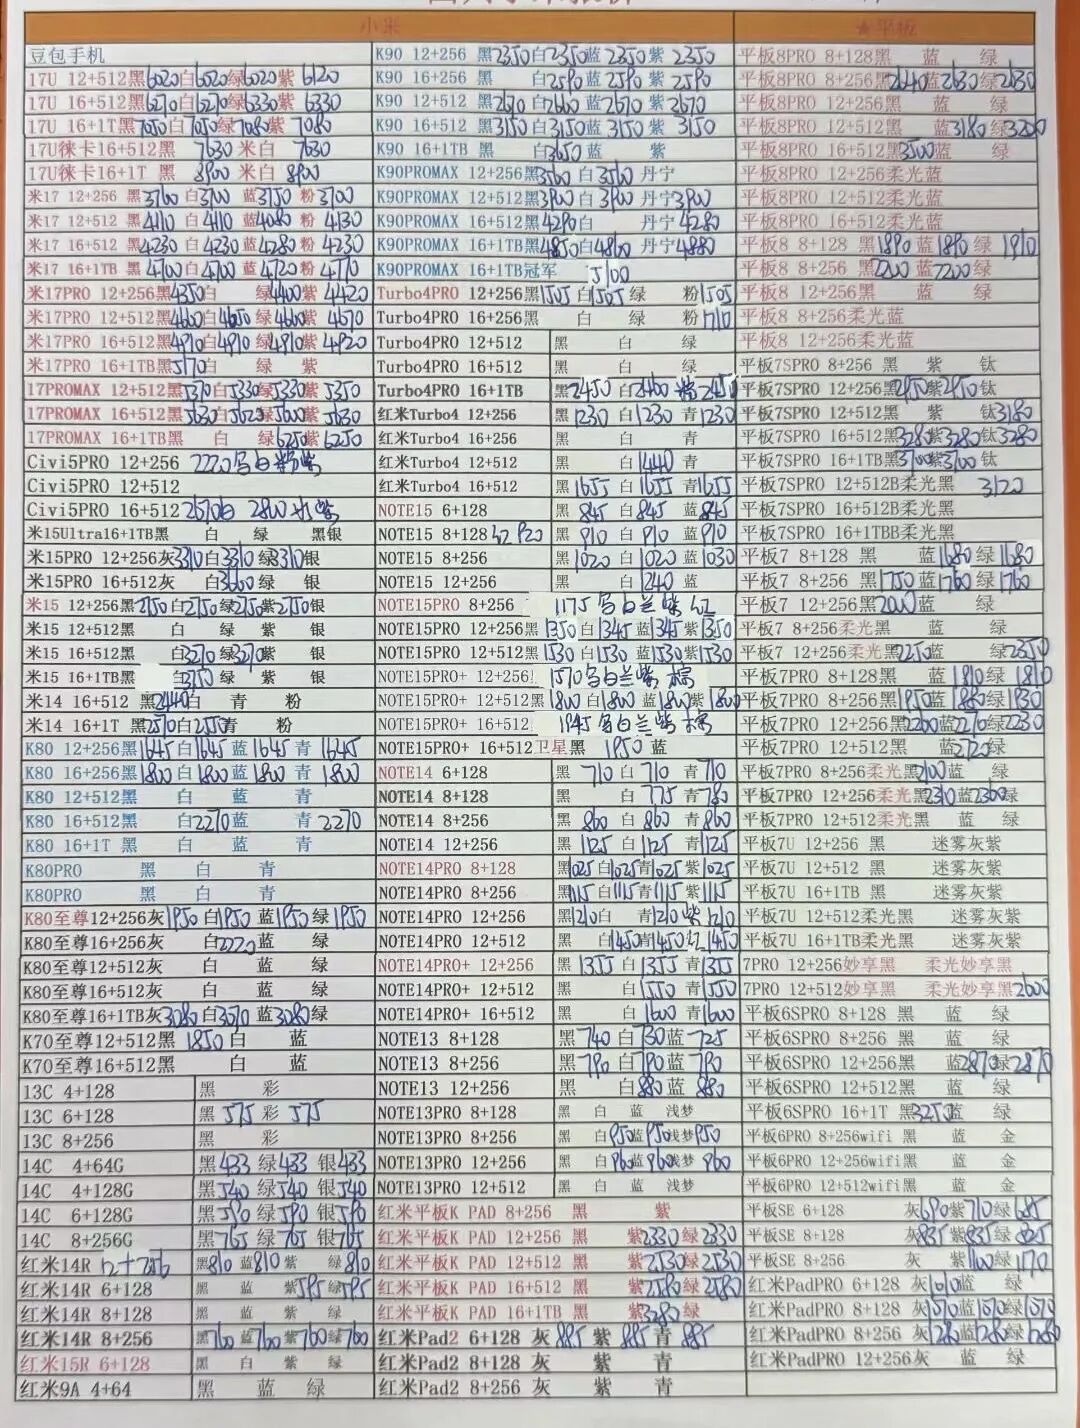 小米
豆包手机
17U 12+512黑6020白6020绿6020紫 6120
17U 16+512黑6270白6270绿6330紫 6330
17U 16+1T黑7050白7050绿7080紫 7080
17U徕卡16+512黑 7630 米白 7630
17U徕卡16+1T 黑 8900 米白 8900
米17 12+256 黑3760白3700 蓝3750 粉3700
米17 12+512 黑4110白4110 蓝4080 粉4130
米17 16+512 黑4230白4230 蓝4280 粉4230
米17 16+1TB 黑4700白4700 蓝4720 粉4770
米17PRO 12+256黑4350白 绿4400紫 4420
米17PRO 12+512黑4600白4650绿4600紫 4670
米17PRO 16+512黑4910白4910绿4910紫 4920
米17PRO 16+1TB黑5170白 绿 紫
17PROMAX 12+512黑5370白5330绿5330紫 5350
17PROMAX 16+512黑5630白5620绿5600紫 5630
17PROMAX 16+1TB黑 白 绿6250紫6250
Civi5PRO 12+256 2220 白粉紫
Civi5PRO 12+512
Civi5PRO 16+512 2670白 2800 紫
米15Ultra16+1TB黑 白 绿 黑银
米15PRO 12+256灰3310白3310绿3310银
米15PRO 16+512灰 白3660绿 银
米15 12+256黑2750白2750绿2750紫2750银
米15 12+512黑 白 绿 紫 银
米15 16+512黑 白3270绿3270紫 银
米15 16+1TB黑 白3750绿 紫 银
米14 16+512 黑2440白 青 粉
米14 16+1T 黑2570白2550青 粉
K80 12+256黑1645白1645蓝1645青 1645
K80 16+256黑1800白1800蓝1800青 1800
K80 12+512黑 白 蓝 青
K80 16+512黑 白2270蓝 青 2270
K80 16+1T 黑 白 蓝 青
K80PRO 黑 白 青
K80PRO 黑 白 青
K80至尊12+256灰1950白1950蓝1950绿1950
K80至尊16+256灰 白2220蓝 绿
K80至尊12+512灰 白 蓝 绿
K80至尊16+512灰 白 蓝 绿
K80至尊16+1TB灰3080白3070蓝3080绿
K70至尊12+512黑 1850白 蓝
K70至尊16+512黑 白 蓝
13C 4+128 黑 彩
13C 6+128 黑 575彩 575
13C 8+256 黑 彩
14C 4+64G 黑433 绿433 银433
14C 4+128G 黑540 绿540 银540
14C 6+128G 黑590 绿590 银590
14C 8+256G 黑765 绿765 银765
红米14R 12+256 黑810 蓝810 紫 绿810
红米14R 6+128 黑 蓝 紫595绿595
红米14R 8+128 黑 蓝 紫 绿
红米14R 8+256 黑760 蓝760 紫760绿760
红米15R 6+128 黑 白 紫 绿
红米9A 4+64 黑 蓝 绿
K90 12+256 黑2350白2350蓝 2350紫 2350
K90 16+256 黑 白2590蓝 2590紫 2590
K90 12+512 黑2670白2660蓝 2670紫 2670
K90 16+512 黑3150白3150蓝 3150紫 3150
K90 16+1TB 黑 白3650蓝 紫
K90PROMAX 12+256黑3560白3560丹宁
K90PROMAX 12+512黑3900白3900丹宁3900
K90PROMAX 16+512黑4290白 丹宁4280
K90PROMAX 16+1TB黑4850白4860丹宁4880
K90PROMAX 16+1TB冠军 5100
Turbo4PRO 12+256黑1505白1505绿 粉1505
Turbo4PRO 16+256黑 白 绿 粉1710
Turbo4PRO 12+512 黑 白 绿
Turbo4PRO 16+512 黑 白 绿
Turbo4PRO 16+1TB 黑2450白2460 紫2450
红米Turbo4 12+256 黑1230白1230青1230
红米Turbo4 16+256 黑 白 青
红米Turbo4 12+512 黑 白1440青
红米Turbo4 16+512 黑1655白1655青1655
NOTE15 6+128 黑845白845蓝845
NOTE15 8+128 红920 黑910白910蓝910
NOTE15 8+256 黑1020白1020蓝1030
NOTE15 12+256 黑 白1240蓝
NOTE15PRO 8+256 1175 白兰紫红
NOTE15PRO 12+256黑1350白1345蓝1345紫1350
NOTE15PRO 12+512黑1530白1530蓝1530紫1530
NOTE15PRO+ 12+256 1570 白兰紫棕
NOTE15PRO+ 12+512黑1800白1800蓝1800紫1800
NOTE15PRO+ 16+512 1945 白兰紫棕
NOTE15PRO+ 16+512卫星黑 1950蓝
NOTE14 6+128 黑710白710青710
NOTE14 8+128 黑 白775青780
NOTE14 8+256 黑860白860青860
NOTE14 12+256 黑1125白1125青1125
NOTE14PRO 8+128 黑1025白1025青1025紫1025
NOTE14PRO 8+256 黑1115白1115青1115紫1115
NOTE14PRO 12+256 黑1210白 青1210紫1210
NOTE14PRO 12+512 黑 白1450青1450红1450
NOTE14PRO+ 12+256 黑1355白1355青1355
NOTE14PRO+ 12+512 黑 白1550青1550
NOTE14PRO+ 16+512 黑 白1600青1600
NOTE13 8+128 黑740白730蓝725
NOTE13 8+256 黑790白790蓝790
NOTE13 12+256 黑 白880蓝880
NOTE13PRO 8+128 黑 白 蓝 浅梦
NOTE13PRO 8+256 黑 白950蓝950浅梦950
NOTE13PRO 12+256 黑 白960蓝960浅梦960
NOTE13PRO 12+512 黑 白 蓝 浅梦
红米平板K PAD 8+256 黑 紫
红米平板K PAD 12+256 黑 紫2330绿2330
红米平板K PAD 12+512 黑 紫2530绿2530
红米平板K PAD 16+512 黑 紫2580绿2580
红米平板K PAD 16+1TB 黑 紫3280绿
红米Pad2 6+128 灰 885 紫 885青 885
红米Pad2 8+128 灰 紫 青
红米Pad2 8+256 灰 紫 青
★平板
平板8PRO 8+128黑 蓝 绿
平板8PRO 8+256黑2640蓝2630绿2630
平板8PRO 12+256黑 蓝 绿
平板8PRO 12+512黑 蓝3180绿3200
平板8PRO 16+512黑3500蓝 绿
平板8PRO 12+256柔光蓝
平板8PRO 12+512柔光蓝
平板8PRO 16+512柔光蓝
平板8 8+128 黑1890蓝1890绿 1910
平板8 8+256 黑2200蓝2200绿
平板8 12+256黑 蓝 绿
平板8 8+256柔光蓝
平板8 12+256柔光蓝
平板7SPRO 8+256 黑 紫 钛
平板7SPRO 12+256黑2450紫2450钛
平板7SPRO 12+512黑 紫 钛3180
平板7SPRO 16+512黑3280紫3280钛3280
平板7SPRO 16+1TB黑3700紫3700钛
平板7SPRO 12+512B柔光黑 3120
平板7SPRO 16+512B柔光黑
平板7SPRO 16+1TBB柔光黑
平板7 8+128 黑 蓝1680绿1680
平板7 8+256 黑1750蓝1760绿1760
平板7 12+256黑2000蓝 绿
平板7 8+256柔光黑 蓝 绿
平板7 12+256柔光黑2250蓝 绿2350
平板7PRO 8+128黑 蓝1810绿1810
平板7PRO 8+256黑1950蓝1880绿1930
平板7PRO 12+256黑2260蓝2270绿2230
平板7PRO 12+512黑 蓝2720绿
平板7PRO 8+256柔光黑2100蓝 绿
平板7PRO 12+256柔光黑2310蓝2360绿
平板7PRO 12+512柔光黑 蓝 绿
平板7U 12+256 黑 迷雾灰紫
平板7U 12+512 黑 迷雾灰紫
平板7U 16+1TB 黑 迷雾灰紫
平板7U 12+512柔光黑 迷雾灰紫
平板7U 16+1TB柔光黑 迷雾灰紫
7PRO 12+256妙享黑 柔光妙享黑
7PRO 12+512妙享黑 柔光妙享黑2600
平板6SPRO 8+128 黑 蓝 绿
平板6SPRO 8+256黑 蓝 绿
平板6SPRO 12+256黑 蓝2870绿2870
平板6SPRO 12+512黑 蓝 绿
平板6SPRO 16+1T 黑3250蓝 绿
平板6PRO 8+256wifi 黑 蓝 金
平板6PRO 12+256wifi黑 蓝 金
平板6PRO 12+512wifi黑 蓝 金
平板SE 6+128 灰690紫710绿685
平板SE 8+128 灰835紫835绿825
平板SE 8+256 灰 紫1100绿1170
红米PadPRO 6+128 灰1010蓝 绿
红米PadPRO 8+128 灰1070蓝1070绿1070
红米PadPRO 8+256 灰1280蓝1280绿1280
红米PadPRO 12+256灰 蓝 绿